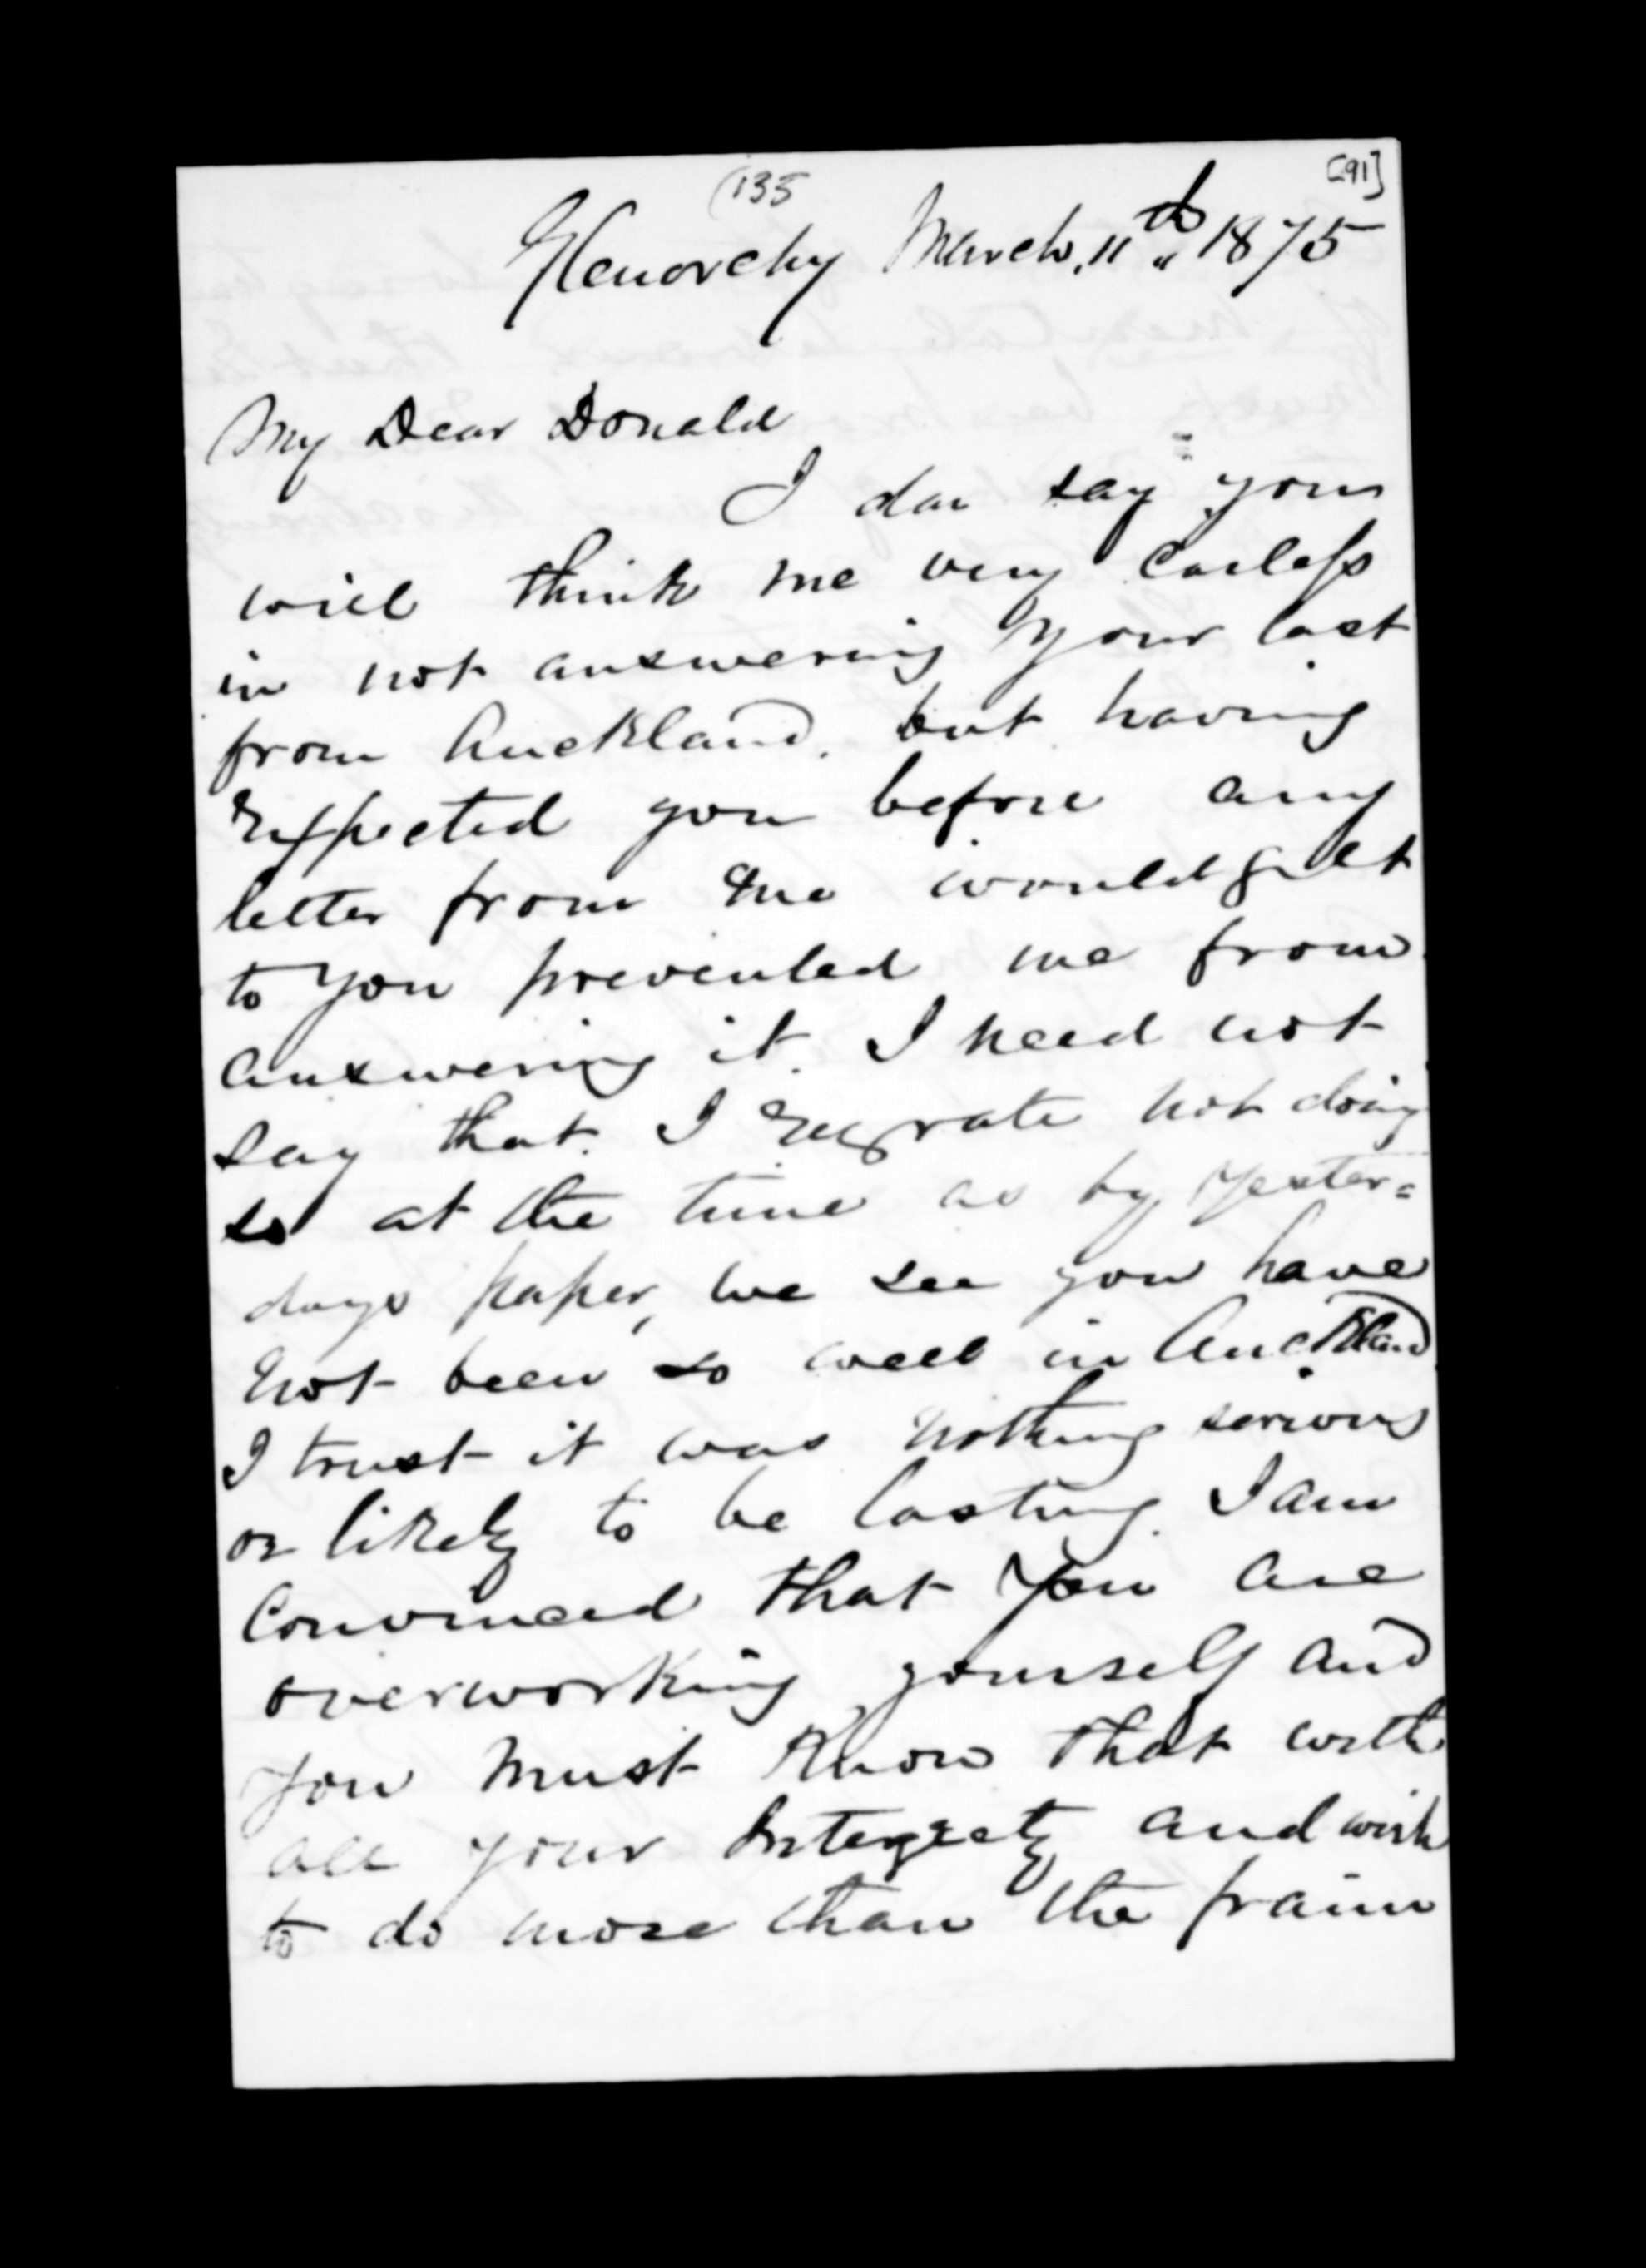 (135
[91]
Glenorchy March, 11th 1875
My Dear Donald
I dar say you
will think me very carless
in not answering your last
from Auckland, but having
Expected you before any
letter from me would get
to you prevented me from
answering it. I need not
say that I regrate not doing
so at the time as by yester=
days paper, we see you have
not been so well in Auckland
I trust it was nothing serious
or likely to be lasting. I am
Convinced that you are
overworking yourself and
you must know that with
all your Integrety and wish
to do more than the fraim